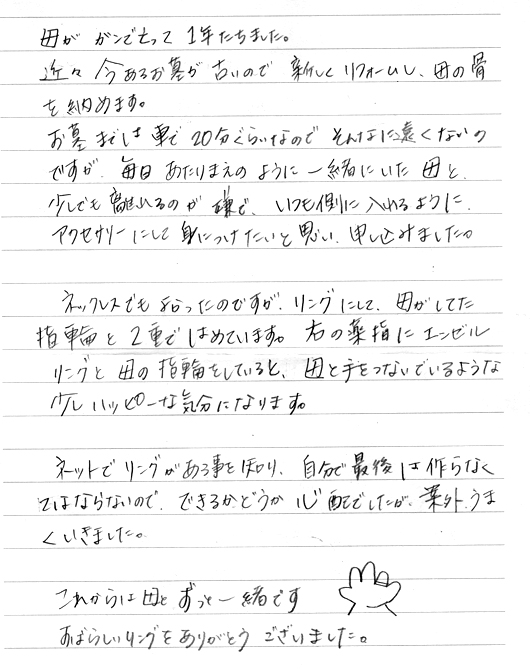 母が ガンで亡って 1年たちました。
近々 今あるお墓が 古いので 新しくリフォームし、母の骨
を納めます。
お墓までは車で20分ぐらいなので そんなに遠くないの
ですが、毎日 あたりまえのように 一緒にいた 母と、
少しでも 離れるのが 嫌で、いつも側に 入れるように、
アクセサリーにして 身につけたいと思い、申し込みました。
ネックレスでも 迷ったのですが、リングにして、母がしてた
指輪と 2重ではめています。右の薬指に エンゼル
リングと 母の 指輪をしていると、母と手をつないでいるような
少し ハッピーな気分になります。
ネットで リングがある事を知り、自分で 最後は作らなく
てはならないので、できるかどうか 心配でしたが、案外、うま
くいきました。
これからは 母と ずっと 一緒です
すばらしいリングをありがとう ございました。